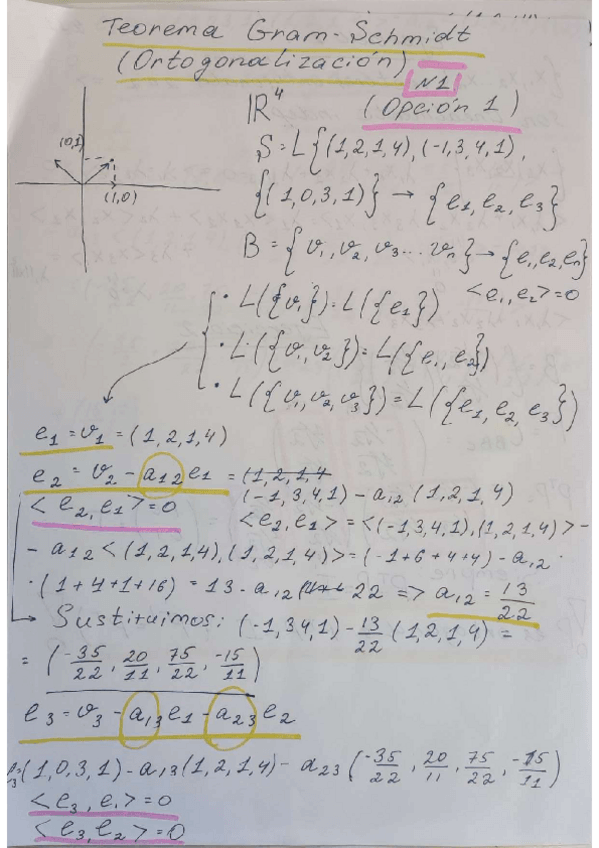 Teorema Gram-Schmidt
(Ortogonalización)
N1
(Opción 1)
ℝ⁴
(0,1)
(1,0)
S = L{(1,2,1,4), (-1,3,4,1),
{(1,0,3,1)} → {e₁, e₂, e₃}
B = {v₁, v₂, v₃ ... vₙ} → {e₁, e₂, eₙ}
<e₁, e₂> = 0
• L({v₁}) = L({e₁})
• L({v₁, v₂}) = L({e₁, e₂})
• L({v₁, v₂, v₃}) = L({e₁, e₂, e₃})
e₁ = v₁ = (1,2,1,4)
e₂ = v₂ - a₁₂ e₁ = (1,2,1,4
(-1,3,4,1) - a₁₂ (1,2,1,4)
<e₂, e₁> = 0
<e₂, e₁> = <(-1,3,4,1), (1,2,1,4)> -
- a₁₂ <(1,2,1,4), (1,2,1,4)> = (-1+6+4+4) - a₁₂ ·
· (1+4+1+16) = 13 - a₁₂ 22 => a₁₂ = 13/22
→ Sustituimos: (-1,3 4,1) - 13/22 (1,2,1,4) =
= (-35/22, 20/11, 75/22, -15/11)
e₃ = v₃ - a₁₃ e₁ - a₂₃ e₂
e₃ (1,0,3,1) - a₁₃ (1,2,1,4) - a₂₃ (-35/22, 20/11, 75/22, -15/11)
<e₃, e₁> = 0
<e₃, e₂> = 0